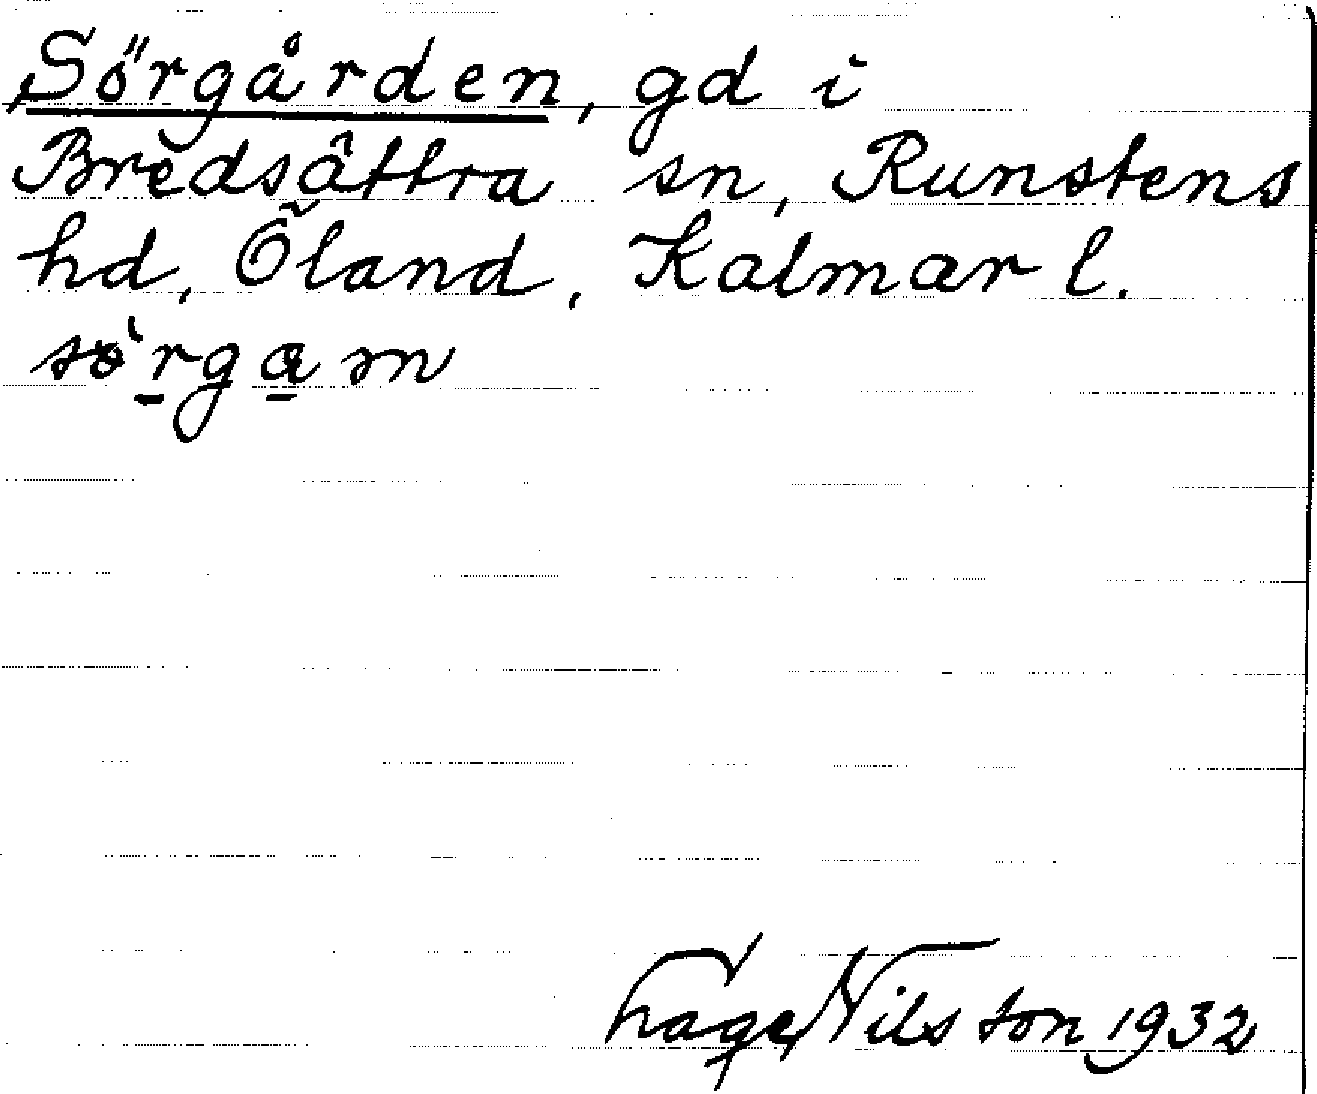 Sörgården, gd i
Bredsättra sn, Runstens
hd, Öland, Kalmar l.
Tage Nilsson 1932